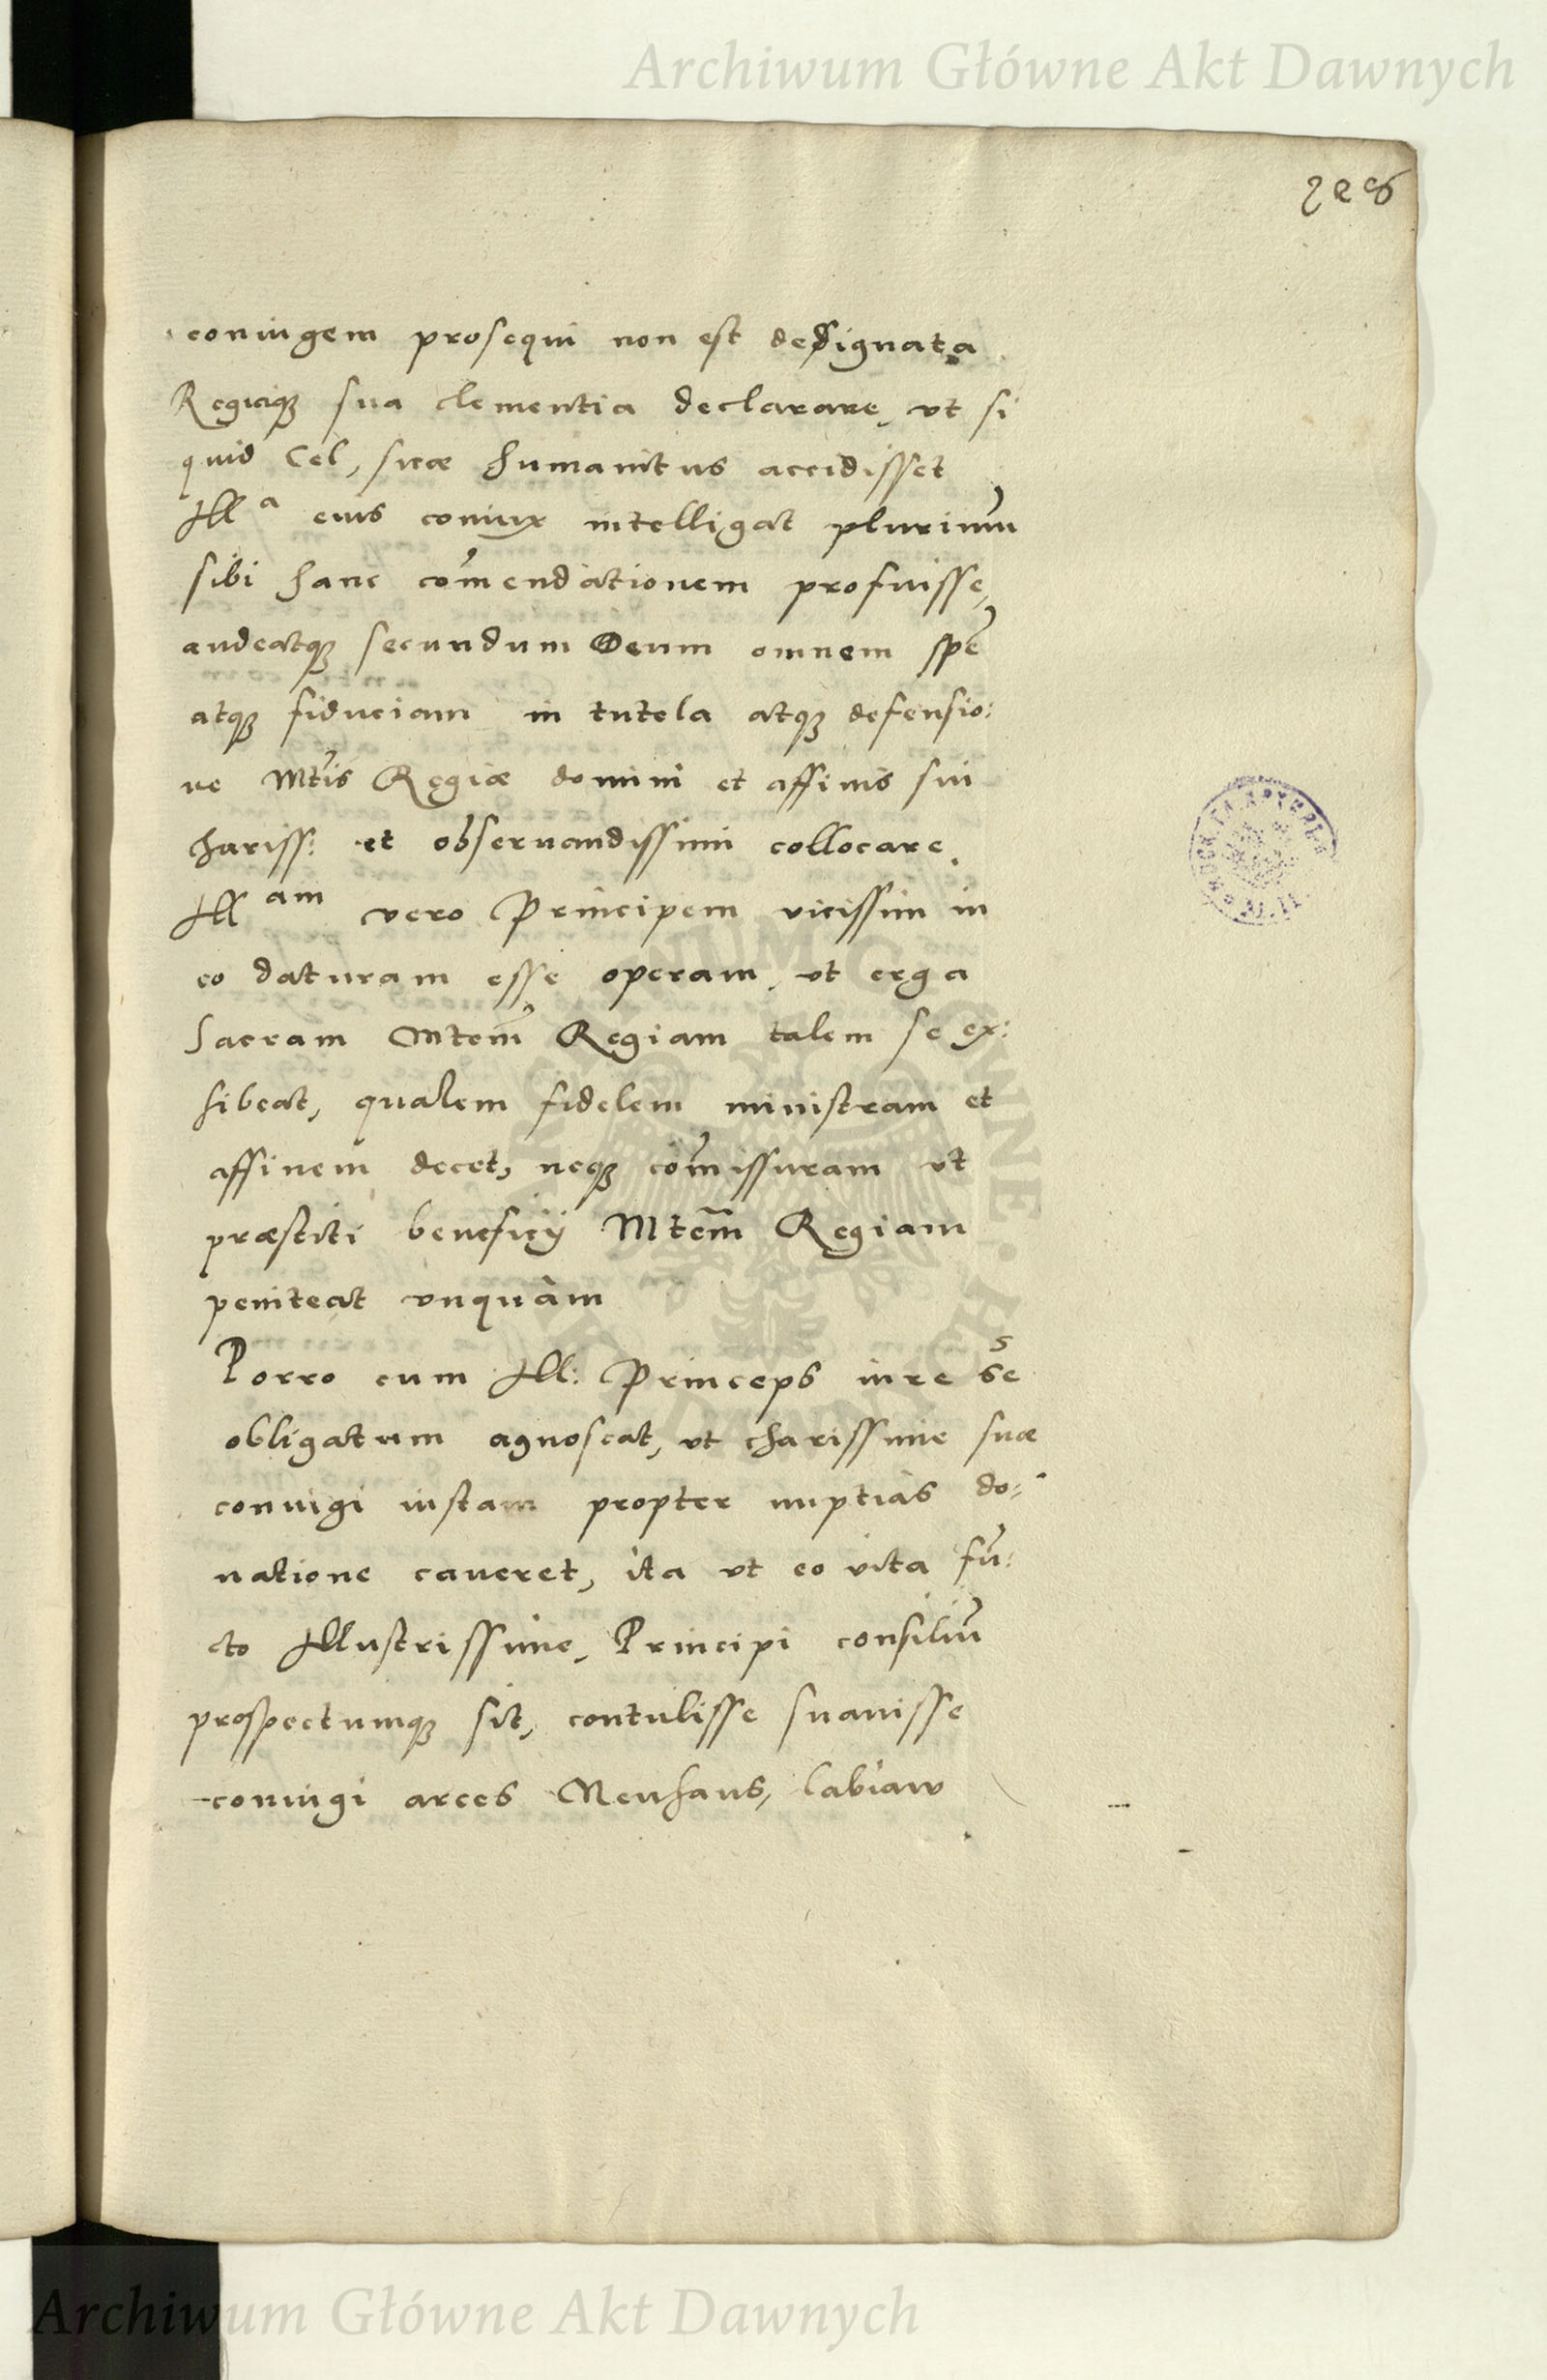 Archiwum Główne Akt Dawnych
coniugem prosequi non est dedignata
Regiaq sua clementia declarare, ut si
quid Cel, suæ humanitus accidisset
Ill a eius coniux intelligat plurimū
sibi hanc com̄endationem profuisse,
audeatq secundum Deum omnem spē
atq fiduciam in tutela atq defensio:
ne Mtis Regiæ domini et affinis sui
chariss: et obseruandissimi collocare.
Ill am vero Principem vicissim in
eo daturam esse operam, ut erga
Sacram Mtem̄ Regiam talem se ex:
hibeat, qualem fidelem ministram et
affinem decet, neq com̄issuram ut
præstiti beneficij Mtem̄ Regiam
peniteat unquàm
Porro cum Ill: Princeps iure se
obligatum agnoscat, ut charissime suæ
coniugi iustam propter nuptias do:
natione caueret, ita ut eo vita fū:
cto Illustrissime, Principi consiliū
prospectumq sit, contulisse suauisse
coniugi arces Neuhaus, Labiaw
Archiwum Główne Akt Dawnych